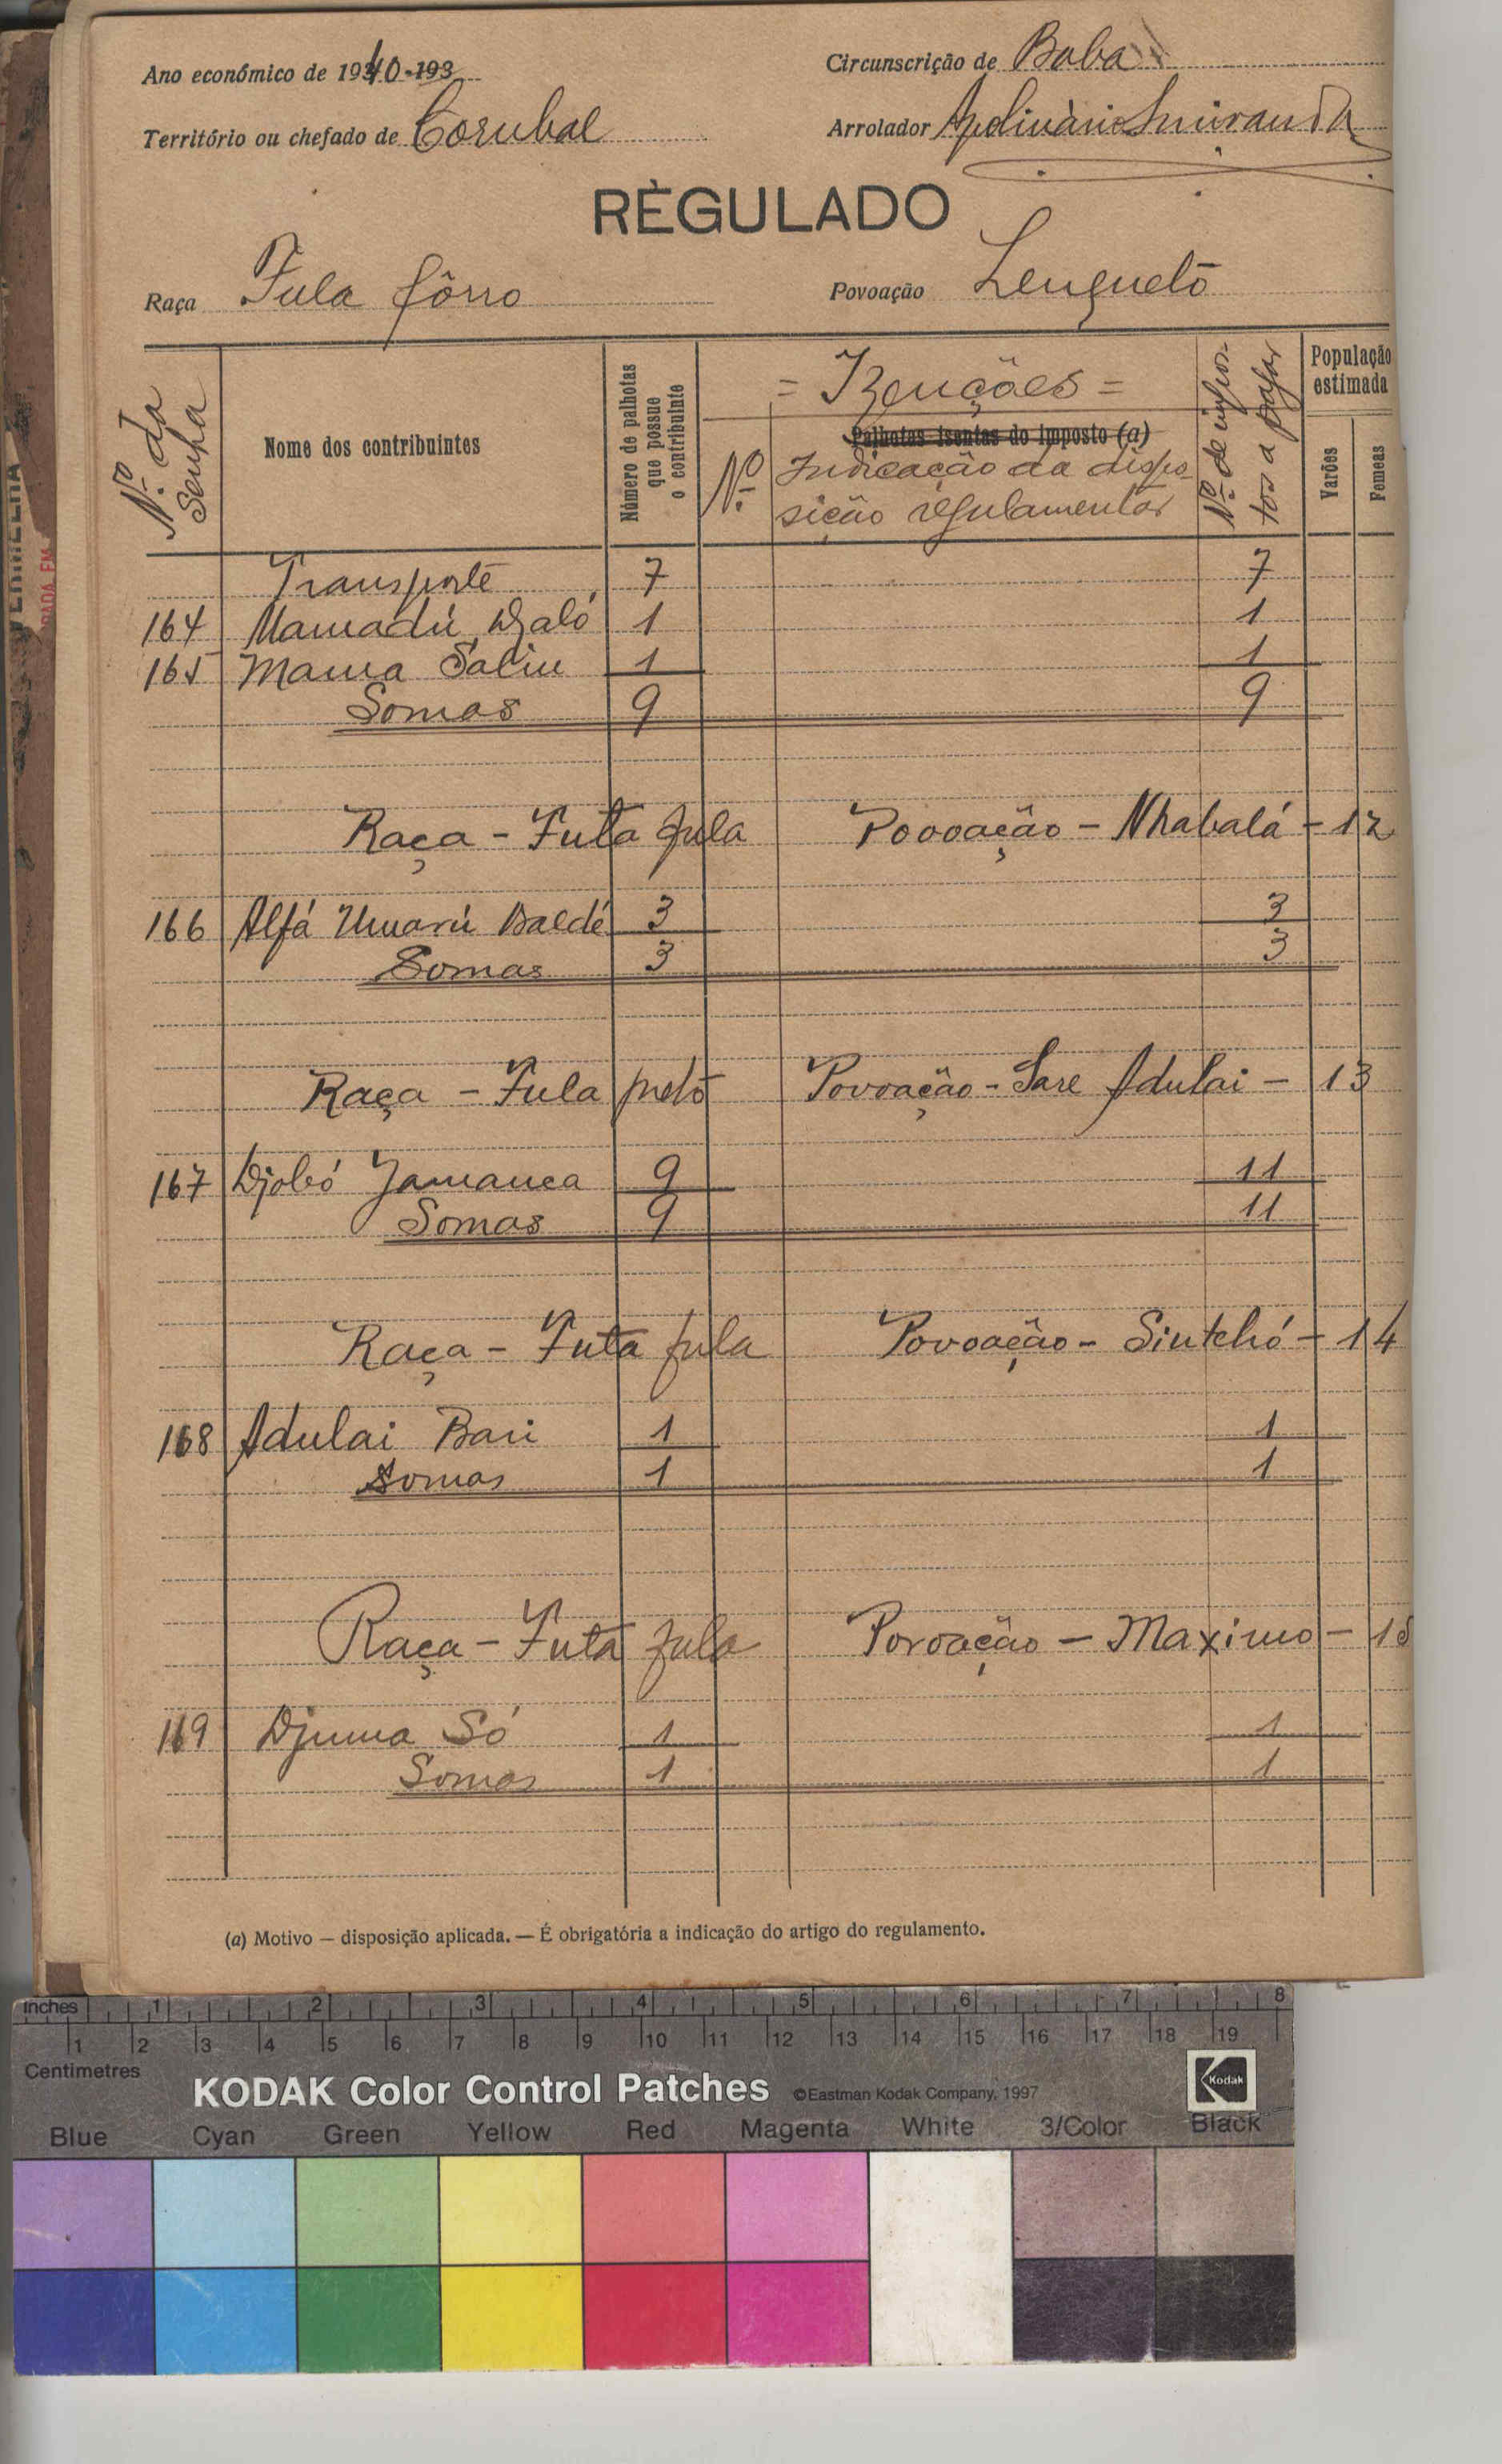 Ano económico de 1940-193
Circunscrição de Buba
Território ou chefado de Corubal
Arrolador Apolinário Miranda
RÈGULADO
Raça Fula fôrro
Povoação Lenguetó
Nº da Senha
Nome dos contribuintes
Número de palhotas que possue o contribuinte
= Izenções =
Palhotas isentas do imposto (a)
Nº
Indicação da dispo-
sição regulamentar
Nº de impos-
tos a pagar
População estimada
Varões
Femeas
Transporte 7 7
164 Mamadú Djaló 1 1
165 Mama Saliu 1 1
Somas 9 9
Raça - Futa fula Povoação - Nhabalá - 12
166 Alfá Umarú Baldé 3 3
Somas 3 3
Raça - Fula preto Povoação - Sare Adulai - 13
167 Djobó Jamanca 9 11
Somas 9 11
Raça - Futa fula Povoação - Sintchó - 14
168 Adulai Bari 1 1
Somas 1 1
Raça - Futa fula Povoação - Maximo - 15
169 Djuma Só 1 1
Somas 1 1
(a) Motivo — disposição aplicada. — É obrigatória a indicação do artigo do regulamento.
Inches 1 2 3 4 5 6 7 8
1 2 3 4 5 6 7 8 9 10 11 12 13 14 15 16 17 18 19
Centimetres
KODAK Color Control Patches ©Eastman Kodak Company, 1997
Kodak
Blue Cyan Green Yellow Red Magenta White 3/Color Black